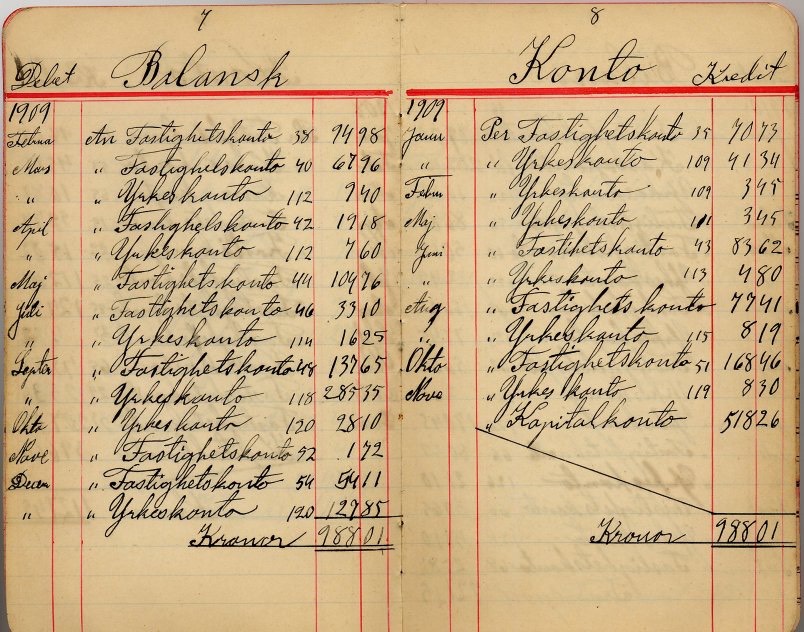 7
Debet Bilansk
1909
Februa An Fastighetskonto 38 94 98
Mars „ Fastighetskonto 40 67 96
„ „ Yrkeskonto 112 9 40
April „ Fastighetskonto 42 19 18
„ „ Yrkeskonto 112 7 60
Maj „ Fastighetskonto 44 104 76
Juli „ Fastighetskonto 46 33 10
„ „ Yrkeskonto 114 16 25
Septer „ Fastighetskonto 48 137 65
„ „ Yrkeskonto 118 285 35
Okto „ Yrkeskonto 120 28 10
Nove „ Fastighetskonto 52 1 72
Decem „ Fastighetskonto 54 54 11
„ „ Yrkeskonto 120 127 85
Kronor 988 01
8
Konto Kredit
1909
Janu Per Fastighetskonto 35 70 73
„ „ Yrkeskonto 109 41 34
Febru „ Yrkeskonto 109 3 45
Maj „ Yrkeskonto 111 3 45
Juni „ Fastihetskonto 43 83 62
„ „ Yrkeskonto 113 4 80
Aug „ Fastighetskonto 77 41
„ „ Yrkeskonto 115 8 19
Okto „ Fastighetskonto 51 168 46
Nove „ Yrkeskonto 119 8 30
„ Kapitalkonto 518 26
Kronor 988 01